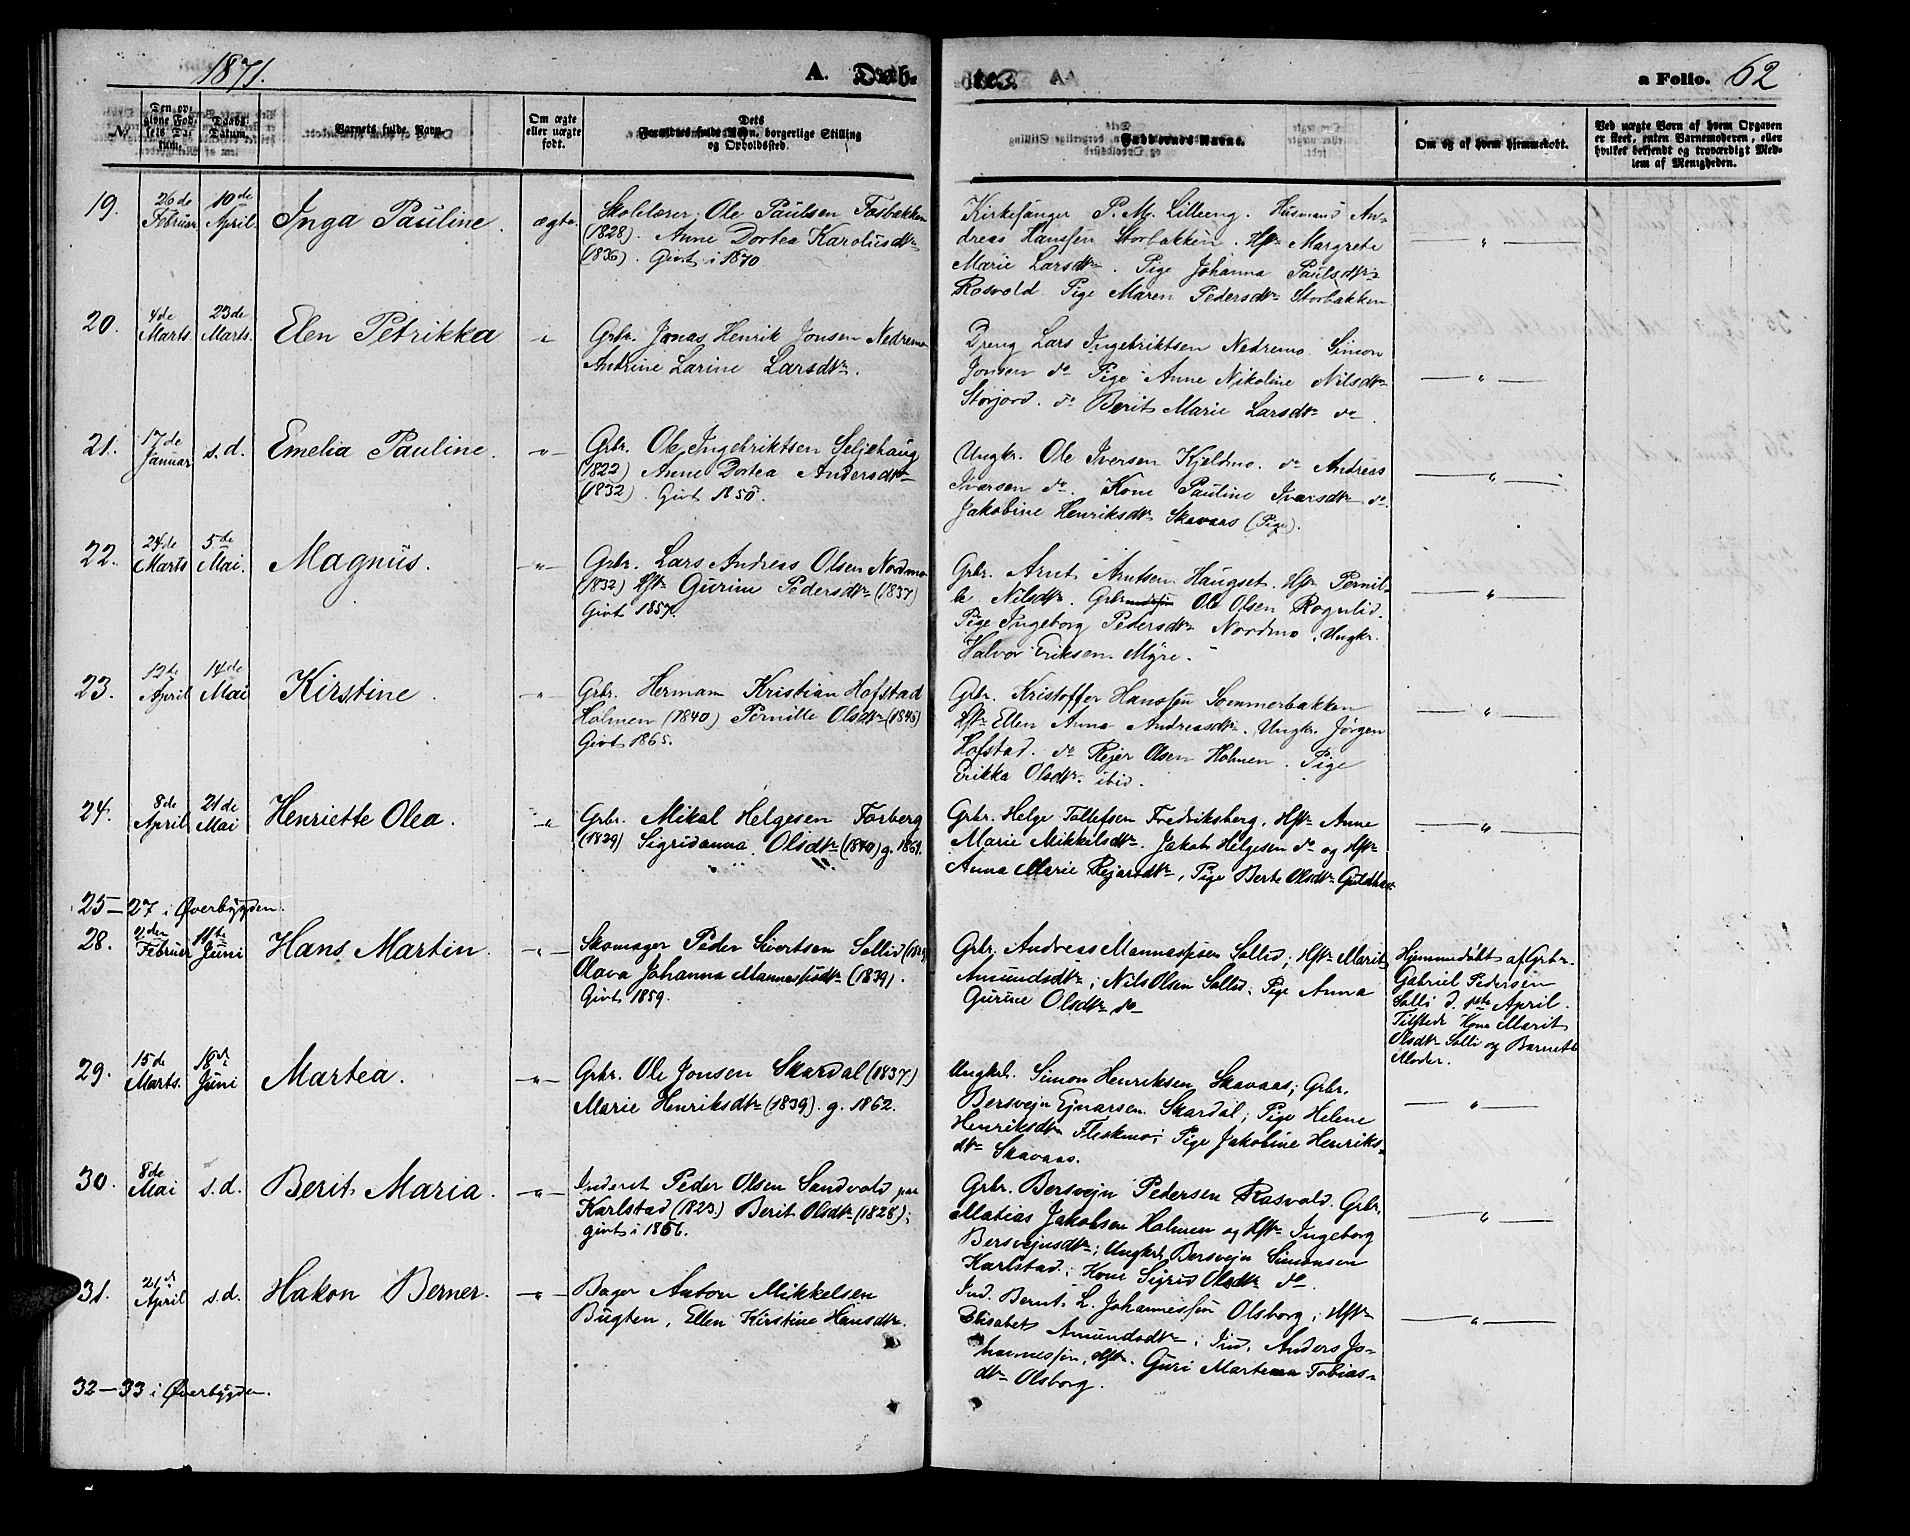 1871.
A. Døb-
te.
a Folio. 62
No.
Den opgivne Fødsels Datum.
Daabs Datum.
Barnets fulde Navn.
Om ægte eller uægte født.
Dets Forældres fulde Navn, borgerlige Stilling og Opholdssted.
Faddernes Navne.
Om og af hvem hjemmedøbt.
Ved uægte Børn af hvem Opgaven er skeet, enten Barnemoderen, eller hvilket bekjendt og troværdigt Medlem af Menigheden.
19.
26de Februar
10de April
Inga Pauline.
ægte
Skolelærer Ole Paulsen Fosbakken
(1828). Anne Dortea Karolusdtr
(1836). Givt i 1870.
Kirkesanger P. M. Lilleeng. Husmand An-
dreas Hanssen Storbakken. Hstr Margrete
Marie Larsdtr. Pige Johanna Paulsdtr
Rosvold. Pige Maren Pedersdtr Storbakken
— " —
20.
4de Marts
23de Marts.
Elen Petrikka
"
Grbr. Jonas Henrik Jonsen Nedremo
Andrine Larine Larsdtr.
Dreng Lars Ingebriktsen Nedremo. Simon
Jonsen do Pige Anne Nikoline Nilsdtr
Storjord. do Berit Marie Larsdtr do
— " —
21.
17de Januar
s.d.
Emelia Pauline.
— " —
Grbr. Ole Ingebriktsen Seljehaug
(1822) Anne Dortea Andersdtr
(1832). Givt 1850.
Ungkr. Ole Iversen Kjeldmo. do Andreas
Iversen do. Kone Pauline Iversdtr do.
Jakobine Henriksdtr Skavaas (Pige).
— " —
22.
24de Marts
5de Mai.
Magnus.
— " —
Grbr. Lars Andreas Olsen Nordmo
(1832) Hstr Gurine Pedersdtr (1837)
Givt 1857.
Grbr. Arnt Arntsen Haugset. Hstr Pernil-
le Nilsdtr. Grbr Ole Olsen Rognlid.
Pige Ingeborg Pedersdtr Nordmo. Ungkr.
Halvor Eriksen Myre.
— " —
23.
12te April
14de Mai
Kirstine.
— " —
Grbr. Hermam Kristian Hofstad
Holmen (1840) Pernille Olsdtr (1845)
Givt 1865.
Grbr. Kristoffer Hanssen Sommerbakken
Hstr Ellen Anna Andreasdtr. Ungkr. Jørgen
Hofstad. do Rejer Olsen Holmen. Pige
Erikka Olsdtr. ibid.
— " —
24.
8de April
21de Mai
Henriette Olea.
— " —
Grbr. Mikal Helgesen Forberg
(1829) Sigridanna Olsdtr (1840) g. 1861.
Grbr. Helge Tollefsen Fredriksberg, Hstr Anne
Marie Mikkelsdtr. Jakob Helgesen do og Hstr
Anna Marie Rejersdtr, Pige Berte Olsdtr Guldhav
— " —
25—27 i Øverbygden.
28.
2den Februar
11te Juni
Hans Martin.
— " —
Skomager Peder Sivertsen Sollid
Olava Johanna Mannasesdtr (1839).
Givt 1859.
Grbr. Andreas Mannassesen Sollid; Hstr Marit
Amundsdtr; Nils Olsen Sollid. Pige Anna
Gurine Olsdtr do
Hjemmedøbt af Grbr.
Gabriel Pedersen
Solli d. 1ste April.
Tilstede Kone Marit
Olsdtr Solli og Barnets
Moder.
29.
15de Marts.
18de Juni
Martea.
— " —
Grbr. Ole Jonsen Skardal (1837)
Marie Henriksdtr (1839). g. 1862.
Ungkrl. Simon Henriksen Skavaas; Grbr.
Bersvejn Ejnarsen Skardal; Pige Helene
Henriksdtr Fleskmo; Pige Jakobine Henriks-
dtr Skavaas.
— " —
30.
8de Mai
s.d.
Berit Maria.
— " —
Inderst Peder Olsen Sandvold paa
Karlstad (1823) Berit Olsdtr (1828);
givt i 1856.
Grbr. Bersvejn Pedersen Rasvold. Grbr.
Matias Jakobsen Holmen og Hstr Ingeborg
Bersvejnsdtr; Ungkrl Bersvejn Simonsen
Karlstad; Kone Sigrid Olsdtr do.
— " —
31.
21de April
s.d.
Hakon Berner.
— " —
Bager Anton Mikkelsen
Bugten, Ellen Kirstine Hansdtr.
Ind. Bernt L. Johannessen Olsborg; Hstr
Elisabet Amundsdtr; Ind. Anders Jo-
hannessen, Hstr. Guri Martina Tobias-
dtr Olsborg.
— " —
32—33 i Øverbygden.